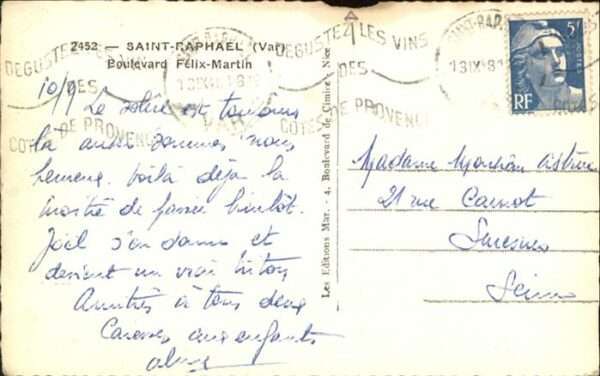 2452 — SAINT-RAPHAEL (Var)
Boulevard Félix-Martin
DEGUSTEZ LES VINS
DES
COTES DE PROVENCE
DEGUSTEZ LES VINS
DES
COTES DE PROVENCE
5F
RF
10/9 Le soleil est toujours
là aussi sommes nous
heureux. Voilà déjà la
moitié de passée bientôt.
Joël s'en donne et
devient un vrai
Amitiés à tous deux
Caresses aux enfants
Les Editions Mar. - 4, Boulevard de Cimiez - Nice
Madame
21 rue Carnot
Suresnes
Seine